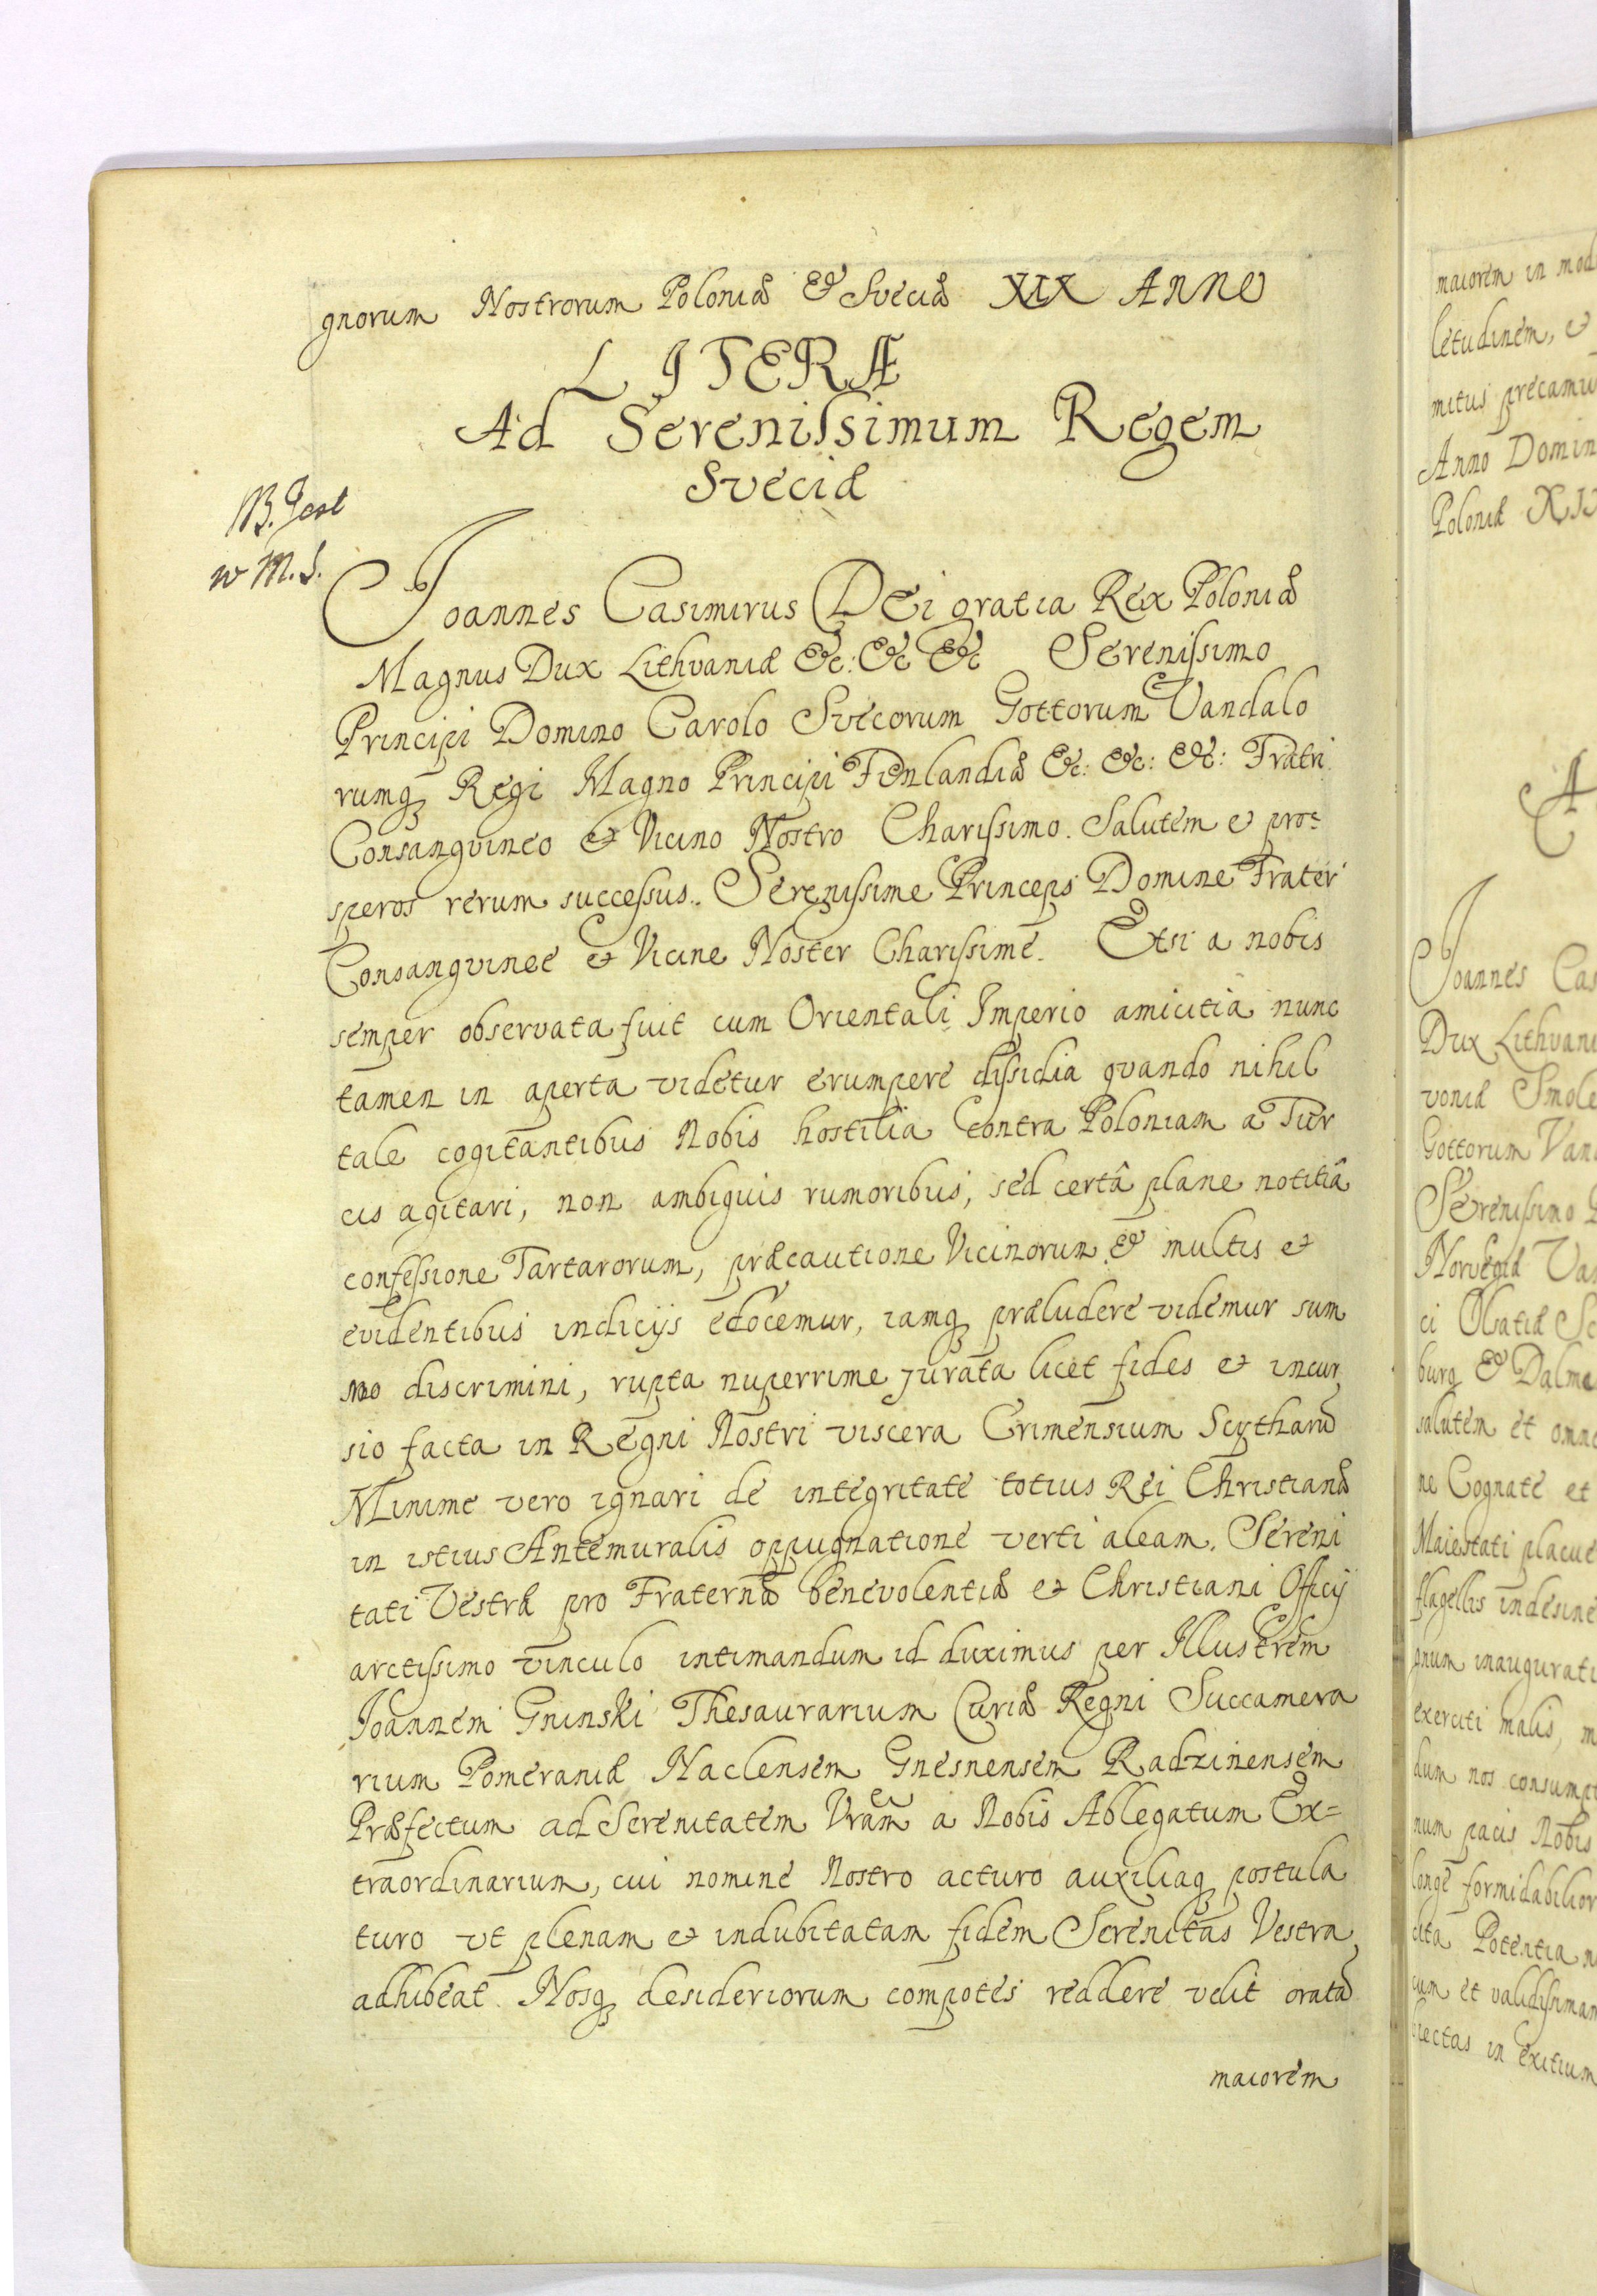 gnorum Nostrorum Poloniæ & Sveciæ XIX Anno
LITERÆ
Ad Serenissimum Regem
Sveciæ
B. Jest
w M.S.
Joannes Casimirus Dei gratia Rex Poloniæ
Magnus Dux Lithvaniæ &c: &c &c Serenissimo
Principi Domino Carolo Svecorum Gottorum Vandalo
rumq Regi Magno Principi Finlandiæ &c: &c: &c: Fratri
Consangvineo & Vicino Nostro Charissimo. Salutem e pro=
speros rerum successus. Serenissime Princeps Domine Frater
Consangvinee & Vicine Noster Charissime. Etsi a nobis
semper observata fuit cum Orientali Imperio amicitia nunc
tamen in aperta videtur erumpere dissidia qvando nihil
tale cogitantibus Nobis hostilia contra Poloniam a Tur
cis agitari, non ambiguis rumoribus, sed certâ plane notitiâ
confessione Tartarorum, præcautione Vicinorum & multis et
evidentibus indicijs edocemur, iamq præludere videmur sum
mo discrimini, rupta nuperrime jurata licet fides et incur
sio facta in Regni Nostri viscera Crimensium Scytharũ
Minime vero ignari de integritate totius Rei Christianæ
in istius Antemuralis oppugnatione verti aleam. Sereni
tati Vestræ pro Fraternæ benevolentiæ et Christiani Officij
arctissimo vinculo intimandum id duximus per Illustrem
Joannem Gninski Thesaurarium Curiæ Regni Succamera
rium Pomeraniæ Naclensem Gnesnensem Radzinensem
Præfectum ad Serenitatem Vram a Nobis Ablegatum Ex=
traordinarium, cui nomine Nostro acturo auxiliaq postula
turo ut plenam et indubitatam fidem Serenitas Vestra
adhibeat. Nosq desideriorum compotes reddere velit oratũ
maiorem
maiorem in mod
letudinem, e
nitus precamu
Anno Domin
Poloniæ XI
A
Joannes Cas
Dux Lithvani
voniæ Smole
Gottorum Van
Serenissimo
Norvegiæ Va
burg & Dalme
salutem et omne
ne Cognate et
Maiestati placue
flagellis indesine
gnum inaugurati
exerciti malis, m
dum nos consumpt
num pacis Nobis
longe formidabilior
cita Potentia n
cum et validissimam
iectas in exitium